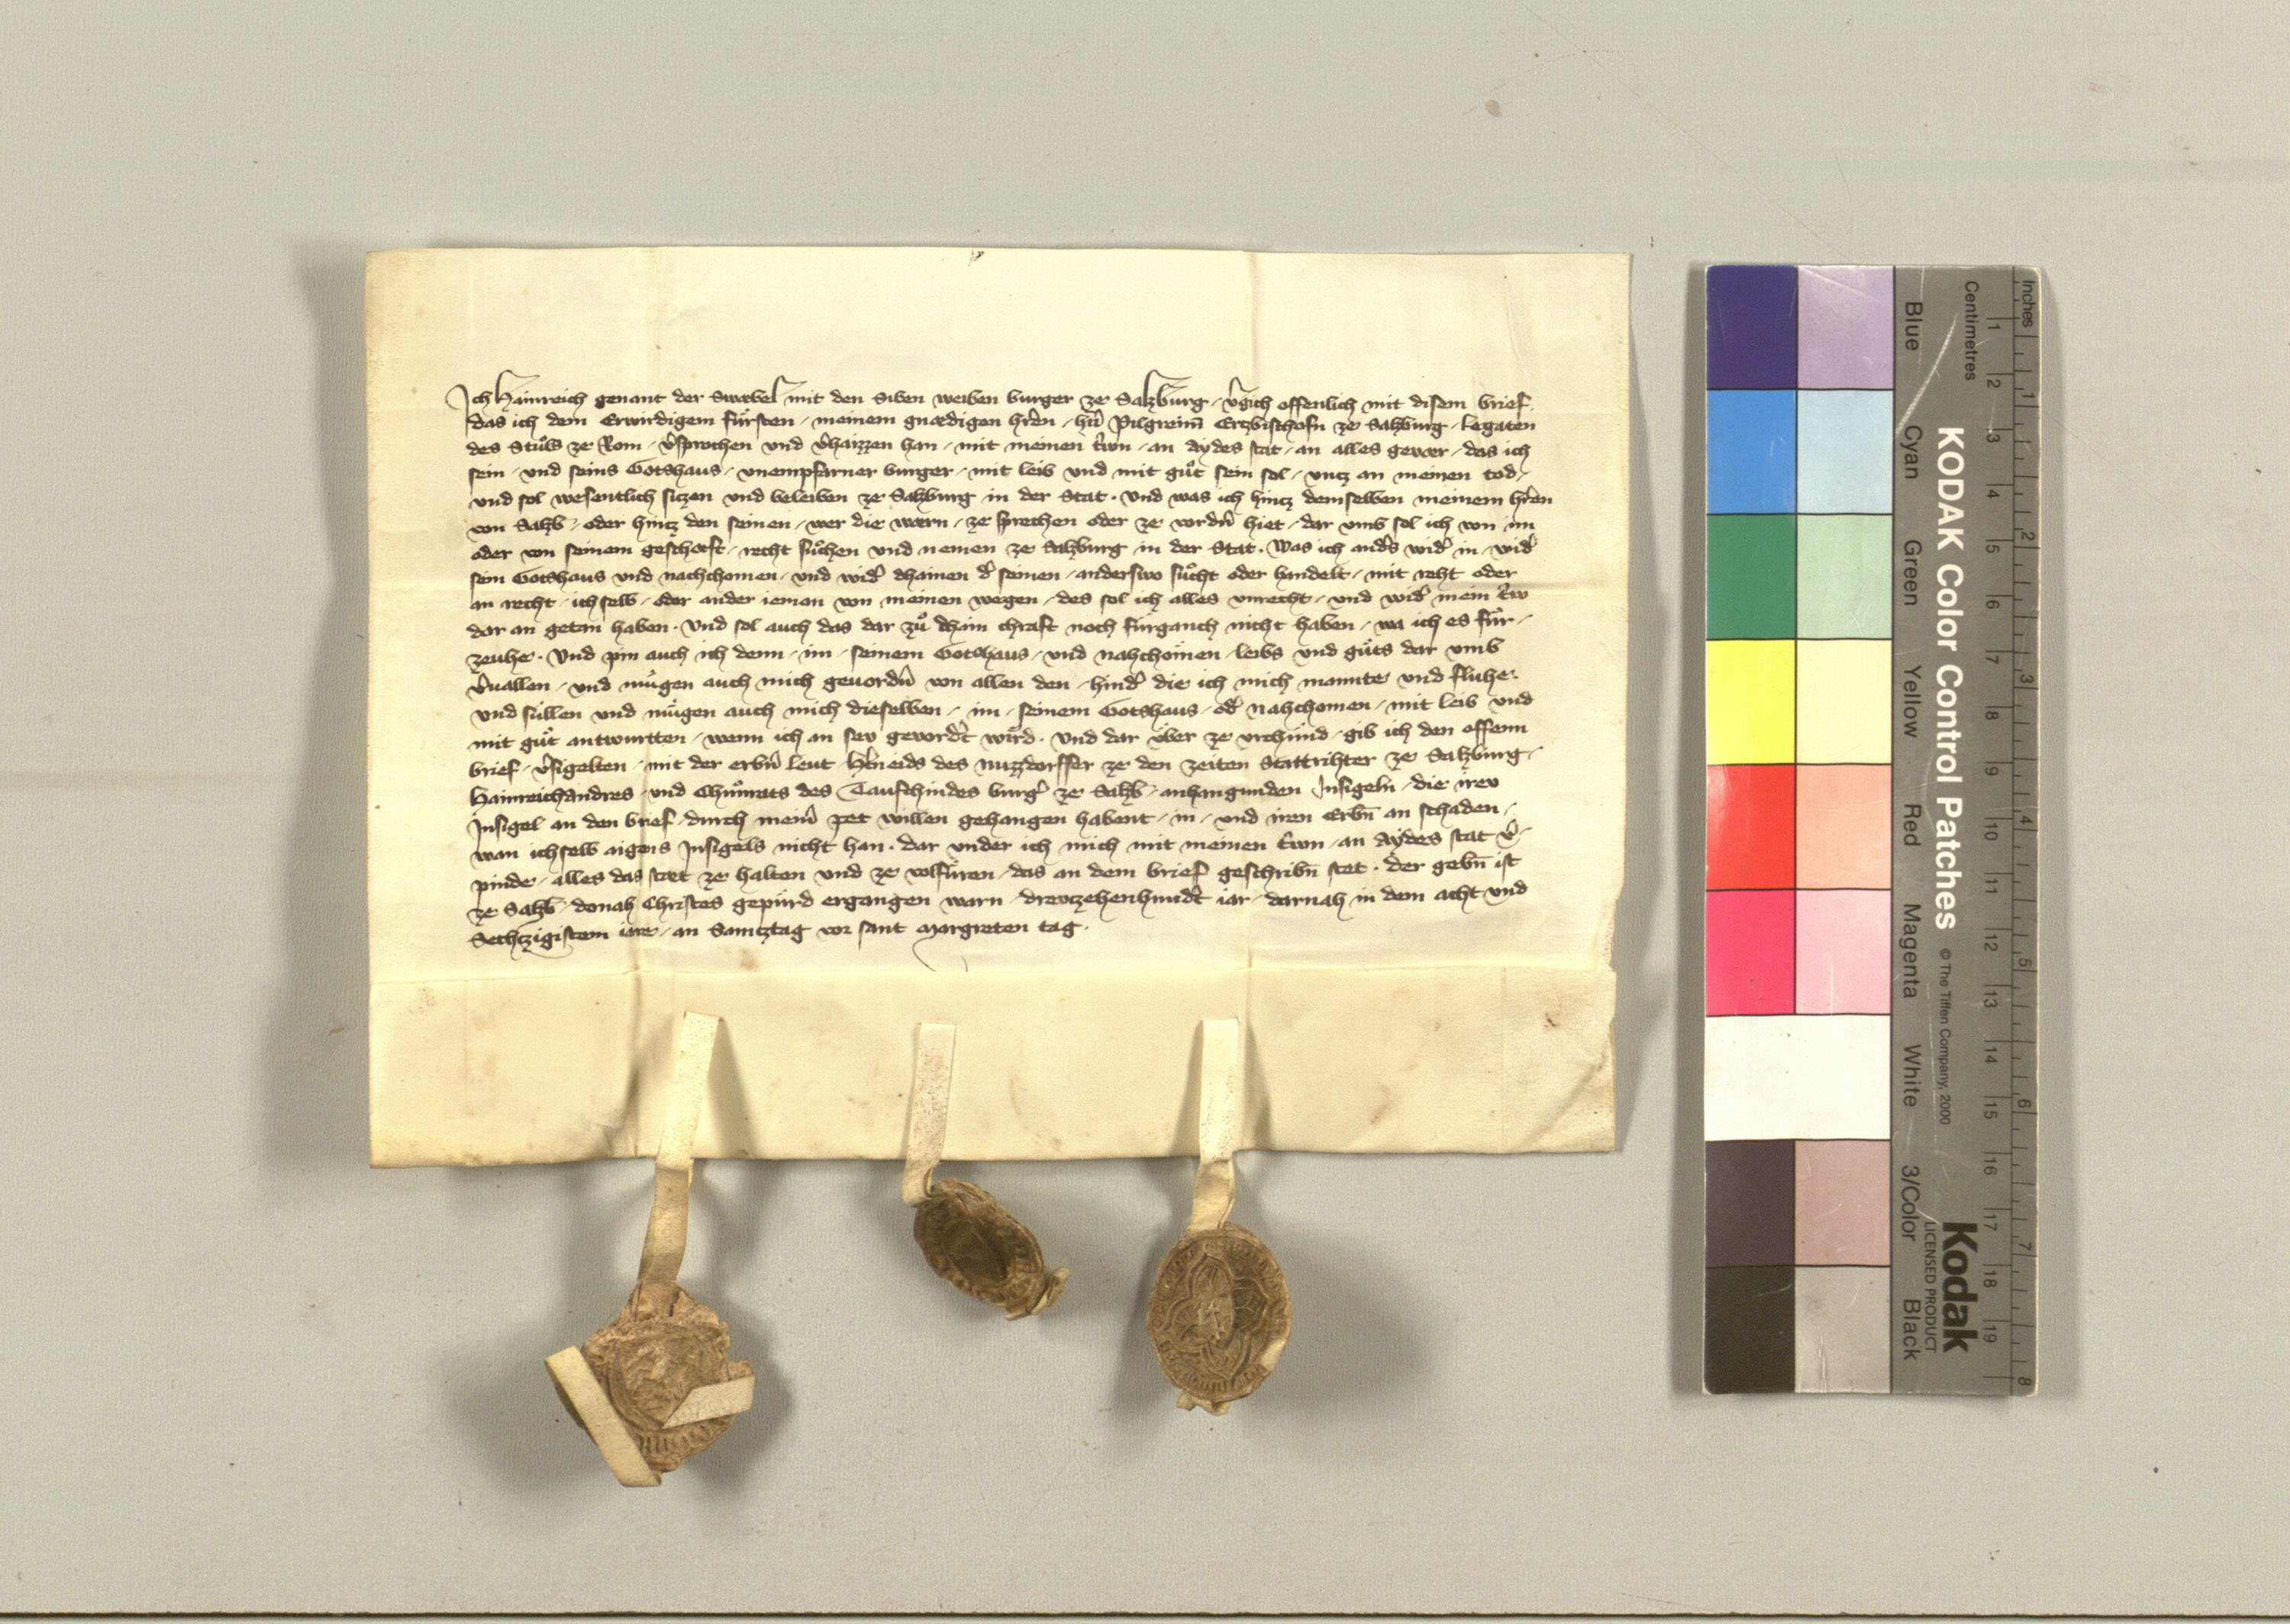 Ich Hainreich genant der Swæbel mit den Siben weiben burger ze Salzburg, v̂gich offenlich mit disem brief,
das ich dem Erwirdigem fürsten, meinem gnædigen hr̂en, hn̂ Pilgreim̄ Erzbischofn ze Salzburg, Legaten
des Stůls ze Rom, v̂sprochen und v̂haizzen han, mit meinen tr̂wn, an aydes stat, an alles gevær, das ich
sein, und seins Gotshaus, unempfarner burger, mit leib und mit gůt sein sol, untz an meinen tod,
und sol wesentlich sitzen und beleiben ze Salzburg in der Stat. Und was ich hintz demselben meinem hr̂en
von Salzb, oder hintz den seinen, wer die wærn, ze sprechen oder ze vordn̂ hiet, dar umb sol ich von im
oder von seinem geschæft, recht sůchen und nemen ze Salzburg in der Stat. Was ich andr̂s wid̂ in, wid̂
sein Gotshaus und nachchomen, und wid̂ dhainen d̂ seinen, anderswo sůcht oder handelt, mit reht oder
an recht, ich selb, oder ander ieman von meinen wegen, des sol ich alles unrecht, und wid̂ mein tr̂w
dar an getan haben. Und sol auch das dar zů dhain chraft noch fürganch nicht haben, wa ich es für,
zeuhe. Und pin auch ich denn, im, seinem Gotshaus, und nahchomen, leibs und gůts dar umb
v̂uallen, und mügen auch mich geuordn̂ von allen den, hind̂ die ich mich mannte und fluhe.
und süllen und mügen auch mich dieselben, im, seinem Gotshaus, od̂ nahchomen, mit leib und
mit gůt antwurtten, wenn ich an sev gevordt̂ wird. Und dar über ze urchünd, gib ich den offenn
brief, v̂sigelten, mit der erbn̂ leut, Hr̂neids des Nuzzdorffer ze den zeiten Stattrihter ze Salzburg,
Hainreichandres, und Chůnrats des Taufchindes burĝ ze Salzb, anhangunden Insigeln, die irev
Insigel an den brief, durch mein̂ pet willen gehangen habent, in, und iren Erbn̄ an schaden,
wan ich selb aigens Insigels nicht han. dar under ich mich mit meinen tr̂wn, an Aydes stat v̂,
pinde, alles das stæt ze halten und ze volfüren, das an dem brief geschribn̄ stet. der gebn̄ ist
ze Salzb, do nah Christes gepürd ergangen warn, drevtzehenhundt̂ iar, darnah in dem acht und
Sechtzigistem iare, an Samtztag vor sant Margreten tag.
KODAK Color Control Patches © The Tiffen Company, 2000
Kodak
LICENSED PRODUCT
Inches 1 2 3 4 5 6 7 8
Centimetres 1 2 3 4 5 6 7 8 9 10 11 12 13 14 15 16 17 18 19
Blue Cyan Green Yellow Red Magenta White 3/Color Black